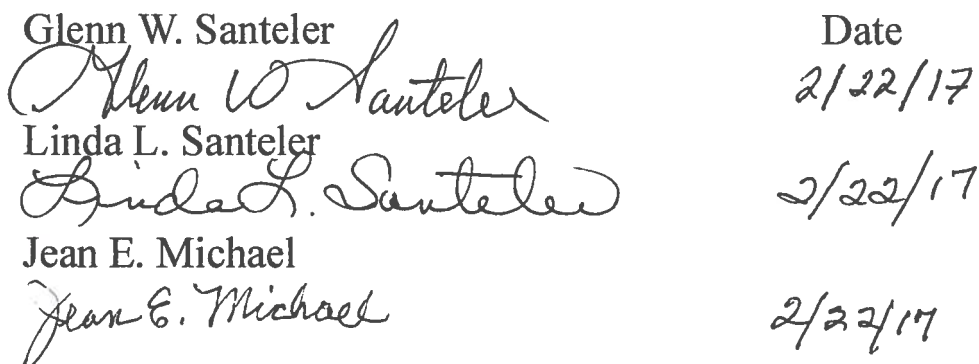 Glenn W. Santeler Date
Glenn W Santeler 2/22/17
Linda L. Santeler
Linda L. Santeler 2/22/17
Jean E. Michael
Jean E. Michael 2/22/17